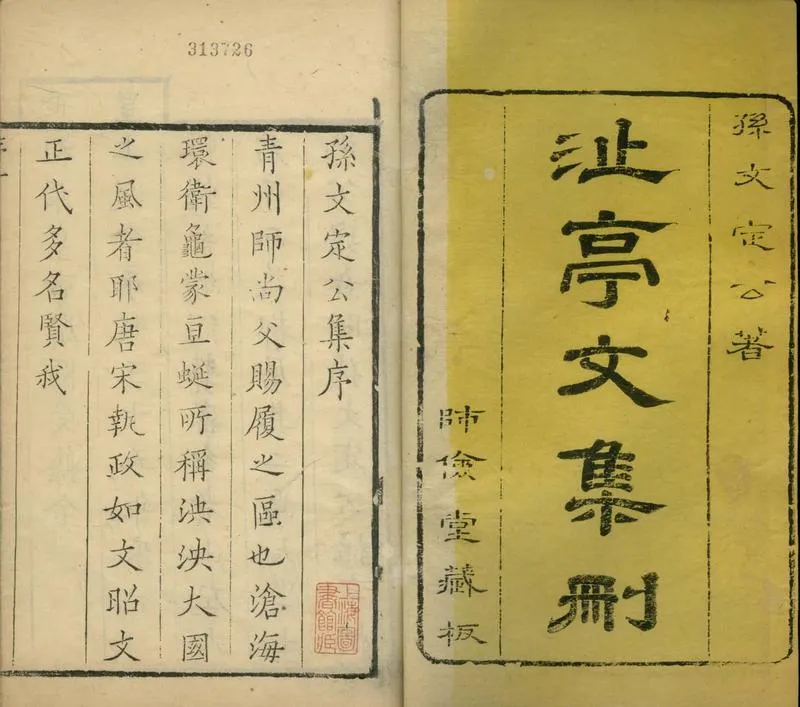 孫文定公著
沚亭文集刪
師儉堂藏板
313726
孫文定公集序
青州師尚父賜履之區也滄海
環衛龜蒙亘蜒所稱泱泱大國
之風者耶唐宋執政如文昭文
正代多名賢我
上海圖
書館藏